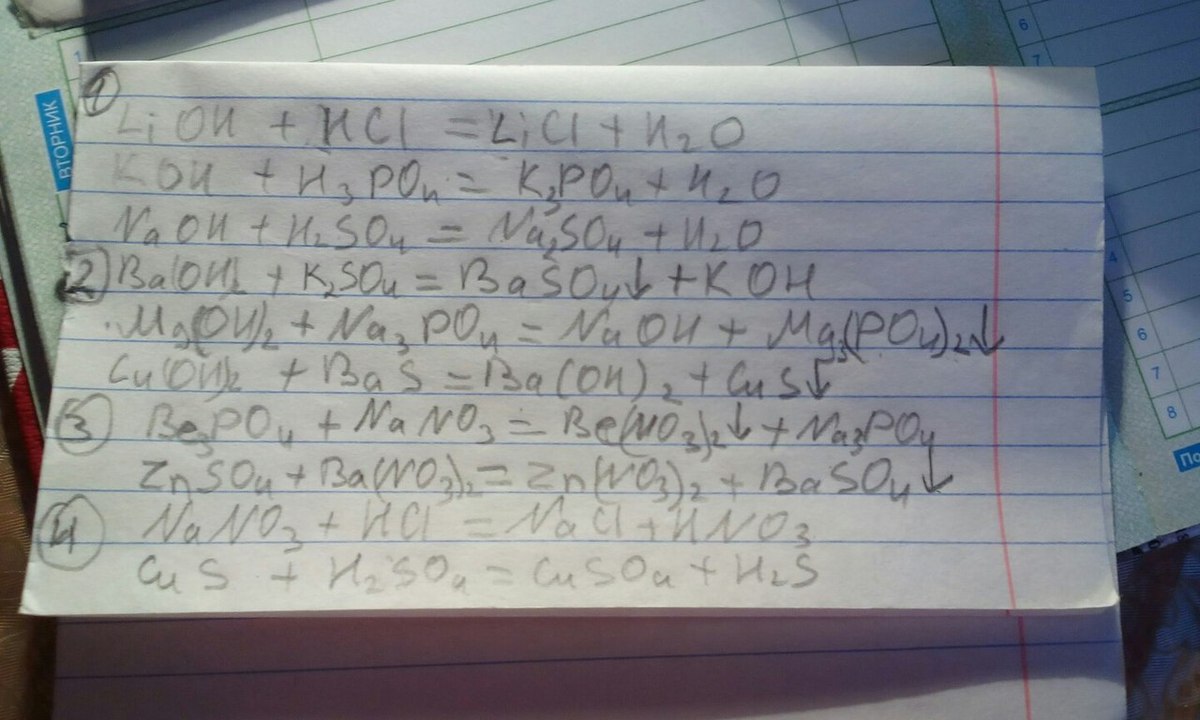 6
7
1
ВТОРНИК
① LiOH + HCl = LiCl + H2O
KOH + H3PO4 = K3PO4 + H2O
NaOH + H2SO4 = Na2SO4 + H2O
② Ba(OH)2 + K2SO4 = BaSO4↓ + KOH
Mg(OH)2 + Na3PO4 = NaOH + Mg3(PO4)2↓
Cu(OH)2 + BaS = Ba(OH)2 + CuS↓
③ Be3PO4 + NaNO3 = Be(NO3)2↓ + Na3PO4
ZnSO4 + Ba(NO3)2 = Zn(NO3)2 + BaSO4↓
④ NaNO3 + HCl = NaCl + HNO3
CuS + H2SO4 = CuSO4 + H2S
4
5
6
7
8